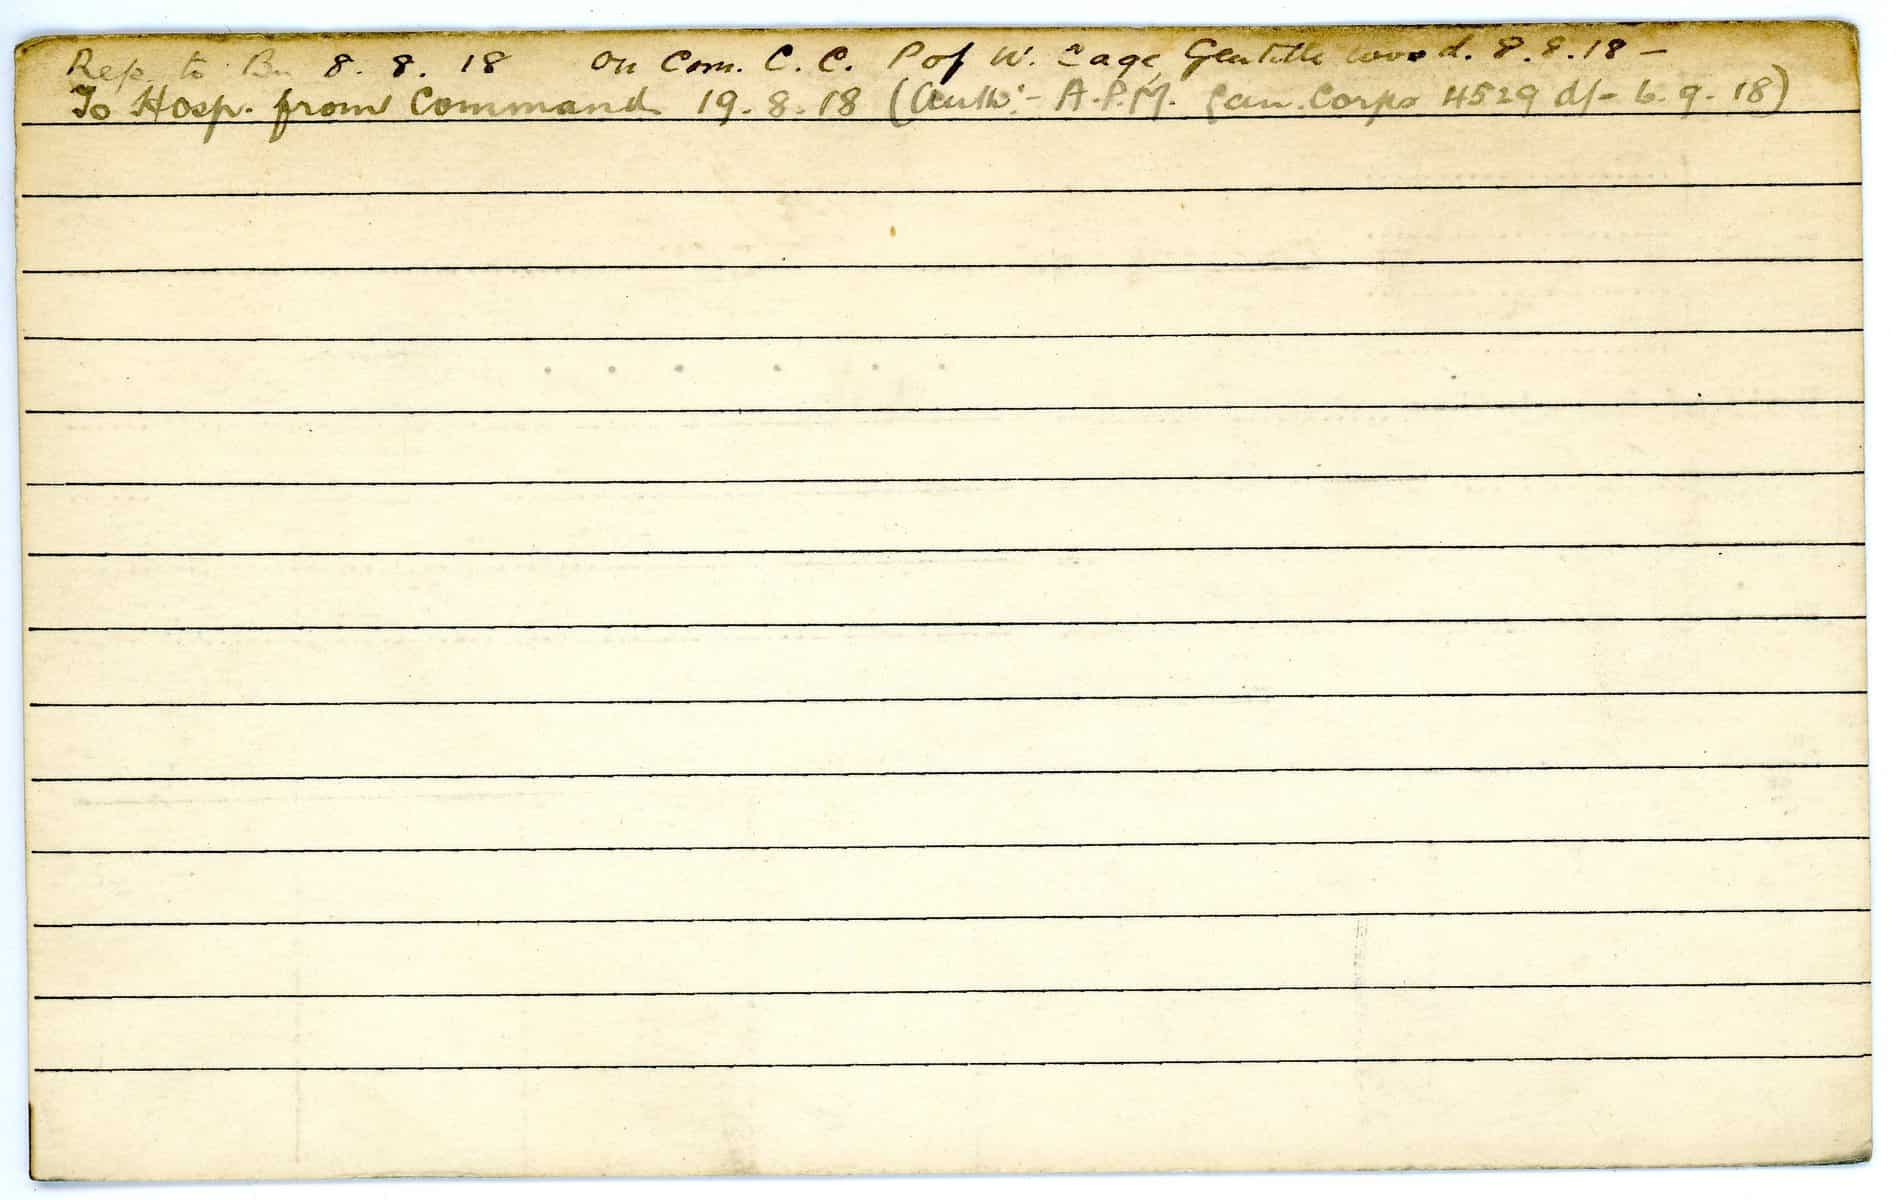 Rep. to Bn 8. 8. 18 On Com. C. C. P of W. Cage, Gentelle Wood. 8.8.18 -
To Hosp. from Command 19.8.18 (Auth:- A.P.M. Can. Corps 4529 d/- 6.9.18)